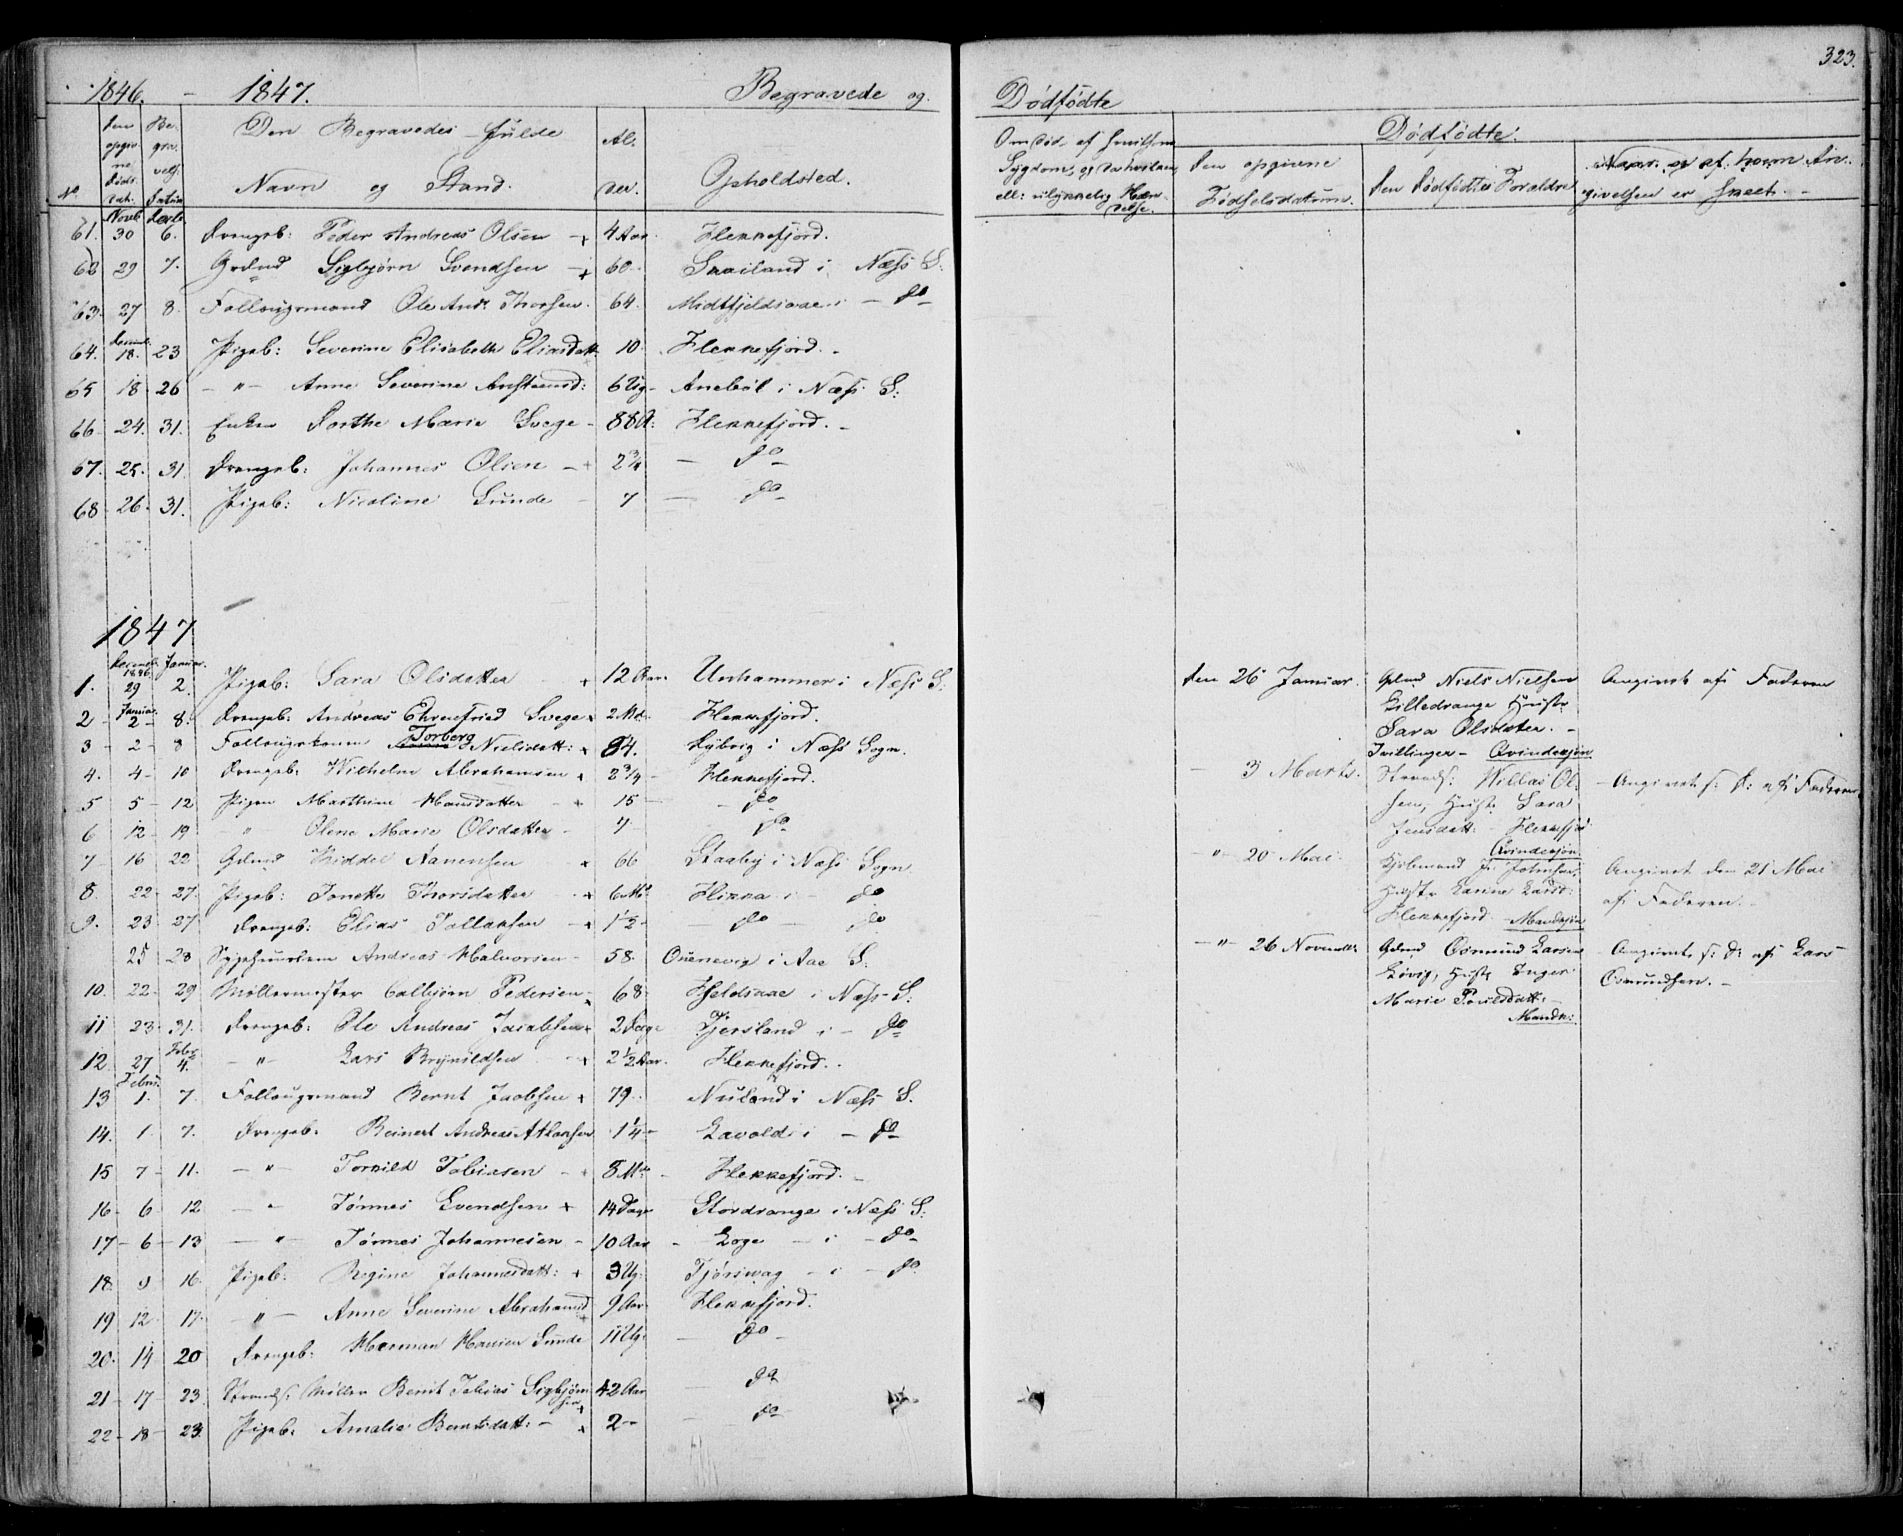 1846. - 1847. Begravede og
No
Den opgivne Døds-dat.
Be-gra-velses Datum
Den Begravedes fulde Navn og Stand.
Al-der.
Opholdsted.
Novb. Decbr.
61. 30 6. Drengeb: Peder Andreas Olsen + 4 Aar Flekkefjord.
62 29 7. Gdmd Sigbjørn Svendsen + 60 i Næss S:
63. 27 8. Follougsmand Ole Andr. Thorsen. 64. Midtfjeldsaae i - do
Decemb.
64. 18. 23 Pigeb: Severine Elisabeth Eliasdatt 10. Flekkefjord.
65 18 26 - " - Anne Severine 6 Ug Anebøl i Næss S:
66 24. 31. Enken Dorthe Marie Svege - 88 A: Flekkefjord. -
67. 25. 31. Drengeb: Johannes Olsen - + 2 3/4 - do
68 26 31. Pigeb: Nicoline Sunde - 7 - do
1847
Decemb. 1846. Januar.
1. 29 2. Pigeb: Sara Olsdatter + 12 Aar Urshammer i Næss S:
Januar.
2 2 8. Drengeb: Andreas Ehrenfried Svege + 2 Md. Flekkefjord.
3 - 2 - 8 Follougskonen Torberg Nielsdatt: + 84. Dybvig i Næss Sogn.
4. 4 10 Drengeb: Wilhelm Abrahamsen + 2 3/4 - Flekkefjord.
5 5 - 12 Pigen Marthine Hansdatter - + 15 - do
6 12 19 - " Olene Marie Olsdatter - 4 - do
7 - 16 22 Gdmd Aanensen + 66 Staaby i Næss Sogn
8. 22 27. Pigeb: Jonette Thorsdatter + 6 Md Flikka i - do
9. 23 27 Drengeb: Elias Tollaksen + 1 1/2 - do - do
25 28 Andreas Halvorsen - 58. i Aae S:
10. 22 29 Møllermester Pedersen + 68 Fjeldsaae i Næss S:
11 23 - 31. Drengeb: Ole Andreas Jacobsen + 2 Dage Tjersland i - do
Febr.
12. 27 4. - " - Lars Brynildsen - + 2 1/2 Aar. Flekkefjord.
Febru.
13 1. 7. Follougsmand Bernt Jacobsen + 79. Nuland i Næss S.
14. 1. 7. Drengeb. Reinert Andreas Atlaksen 1 1/4 - Lavold i - do
15 7 - 11. - " - Torkild Tobiasen - + 8 Md Flekkefjord. -
16 - 6 12 - " Tønnes Svendsen + 14 Dage Stordrange i Næss S:
17 - 6 - 13 - " - Tønnes Johannesen - 10 Aar Loge - i - do
18. 9 16. Pigeb: Regine Johannesdatt: + 3 Ug: Tjørsvaag - i - do
19 12 17. - " - Anne Severine Abrahamsd 9 Aar Flekkefjord.
20. 14 20 Drengeb: Herman Hansen Sunde 11 Ug: - do -
21 17 23. Strands. Møller Bernt Tobias Sigbjørnsen + 42 Aar - do
22 - 18 23. Pigeb: Amalie Berntsdatt: - + 2 - - do
323.
Dødfødte
Om død af smitsom
Sygdom, og
ell: ulykkelig Hændelse.
Dødfødte.
Den opgivne Fødselsdatum.
Den Dødfødtes Foraldre
Naar og af hvem Angivelsen er skeet. -
Den 26 Januar. Gdmd Niels Nielsen
Lilledrange Hust:
Sara Olsdatter. -
Tvillinger - Qvindekjøn
Angivet af Faderen
- 3 Marts. Strands: Willas Olsen, Hust: Sara
Jensdatt: Flekkefjor
Qvindekjøn
- Angivet s: D: af Faderen
- " - 20 Mai. Johnsen,
Hust: Karine Larsd:
Flekkefjord - Mandkjøn
Angivet den 21 Mai
af Faderen. -
- " - 26 Novembr. Gdmd Osmund Larsen
Løvig, Hust: Inger
Marie
Mandk:
Angivet s: D: af Lars
Osmundsen. -